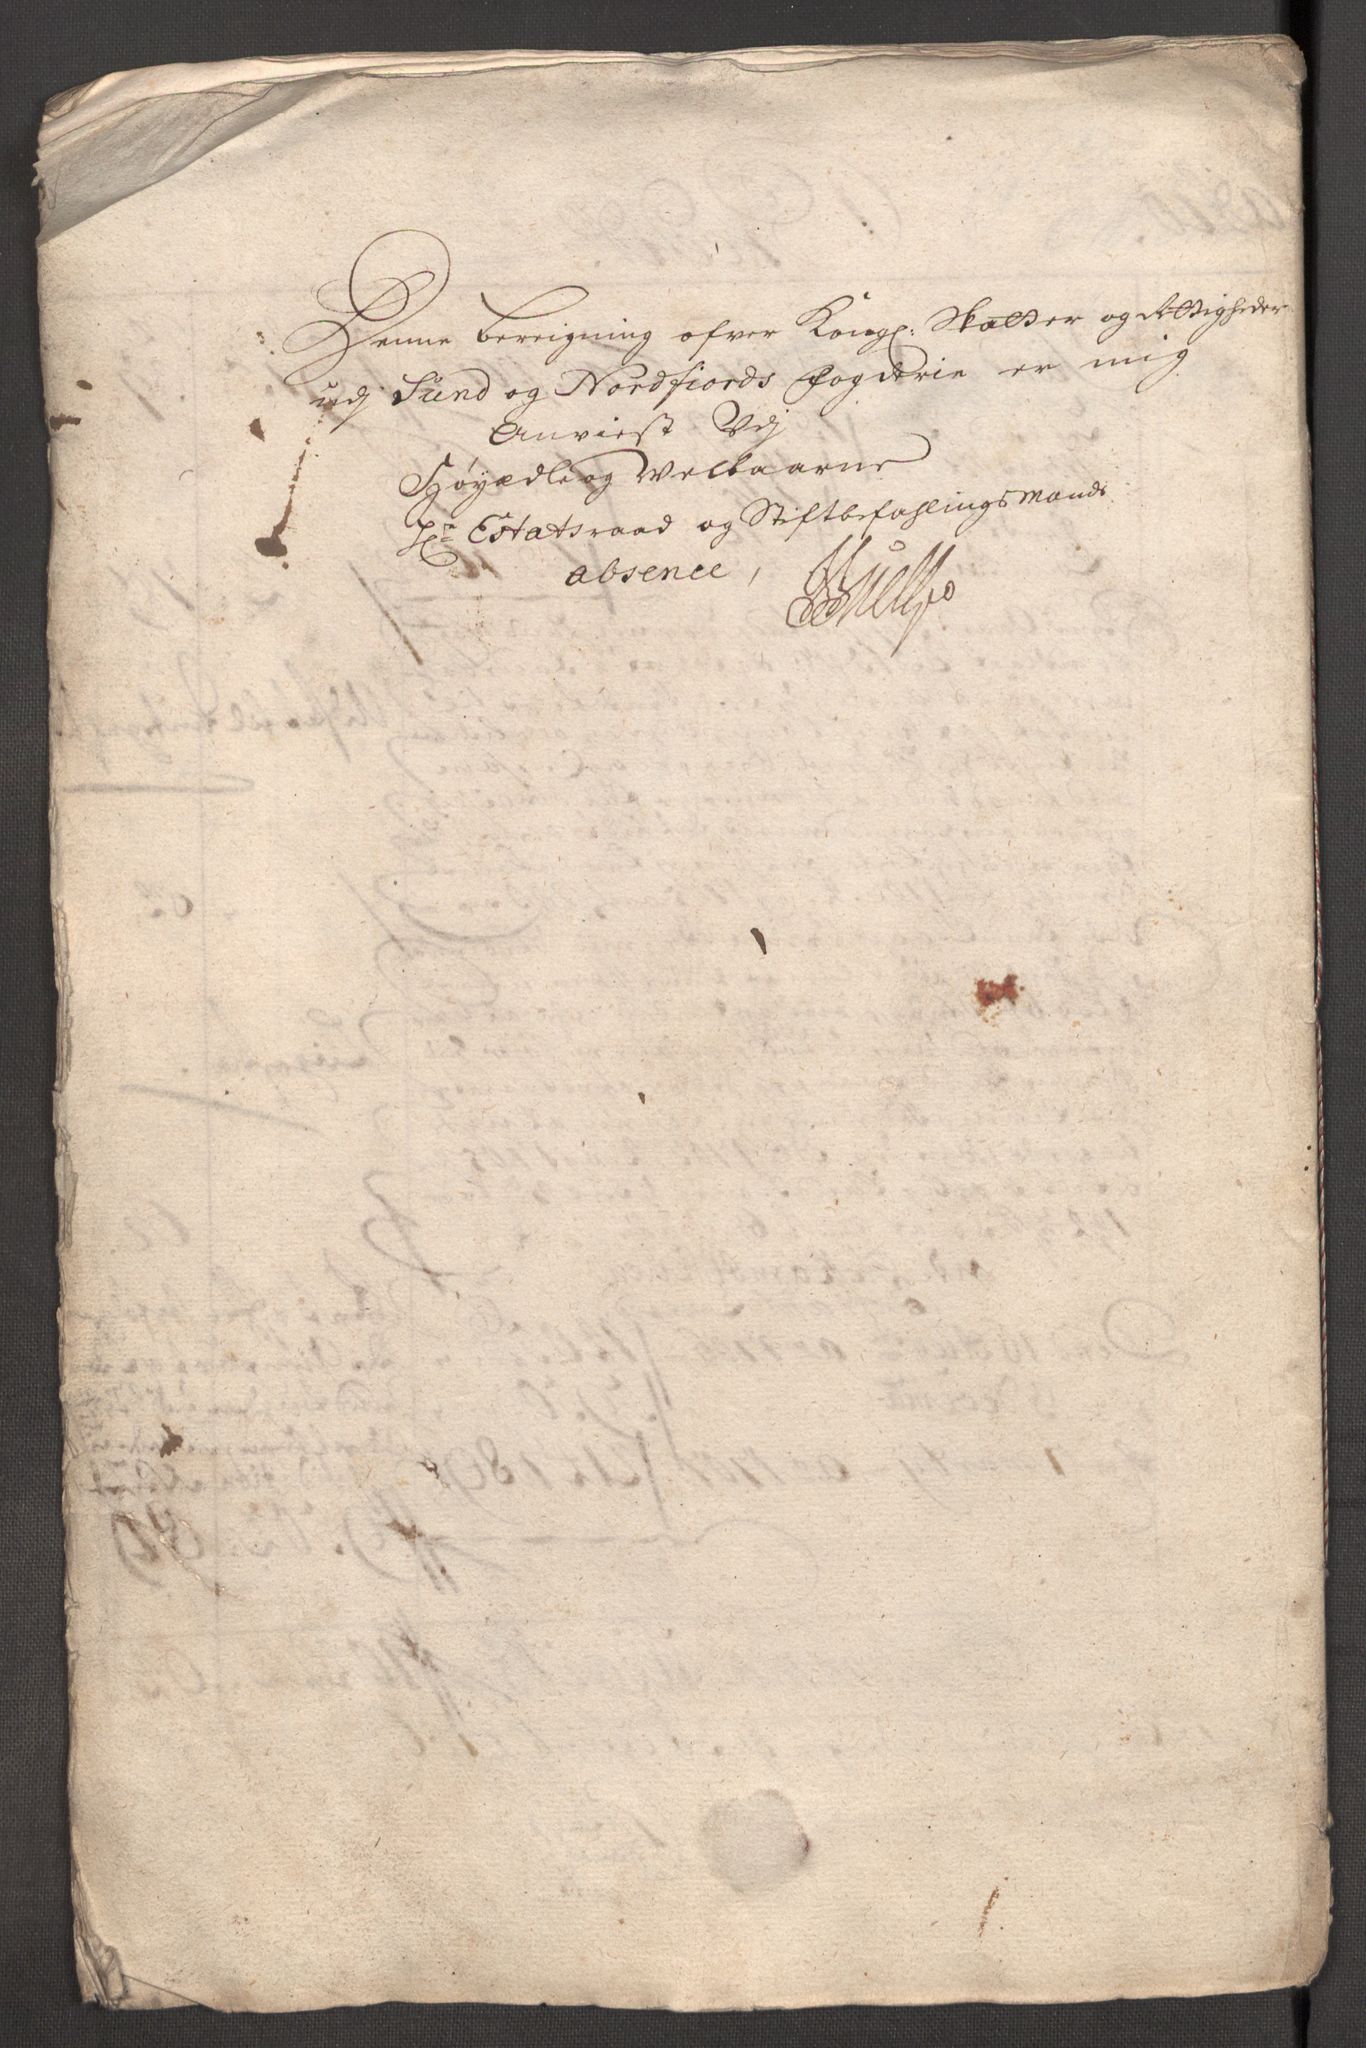 Denne bereigning ofver Kongl: Skatter og Rettigheder
udj Sund og Nordfiords fogderie er mig
Anviest Udj
Høyædle og Velbaarne
Hr Estatsraad og Stiftbefahlings Mands
absence,